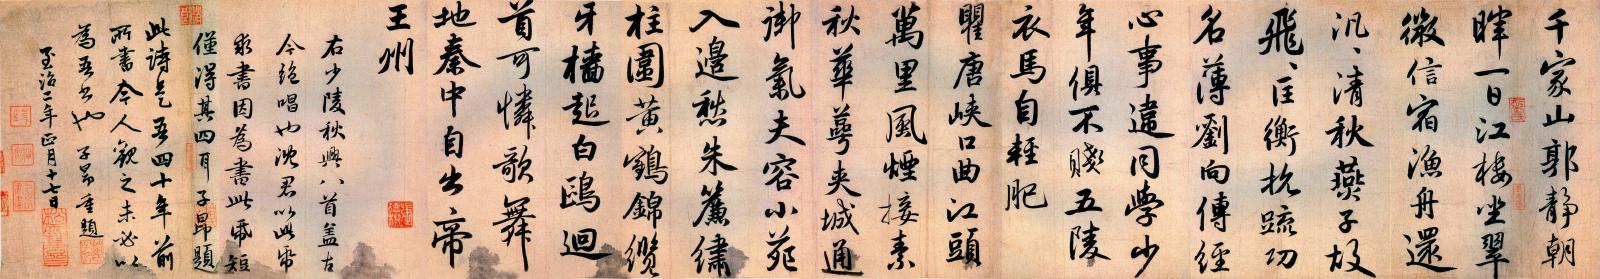 千家山郭靜朝
暉一日江樓坐翠
微信宿漁舟還
汎、清秋燕子故
飛、匡衡抗疏功
名薄劉向傳經
心事違同學少
年俱不賤五陵
衣馬自輕肥
瞿唐峽口曲江頭
萬里風煙接素
秋華萼夾城通
御氣夫容小苑
入邊愁朱簾繡
柱圍黃鶴錦纜
牙檣起白鷗迴
首可憐歌舞
地秦中自出帝
王州
右少陵秋興八首蓋古
今絕唱也沈君以此帋
求書因為書此帋短
僅得其四耳子昂題
此詩是吾四十年前
所書今人觀之未必以
為吾書也子昂重題
至治二年正月十七日